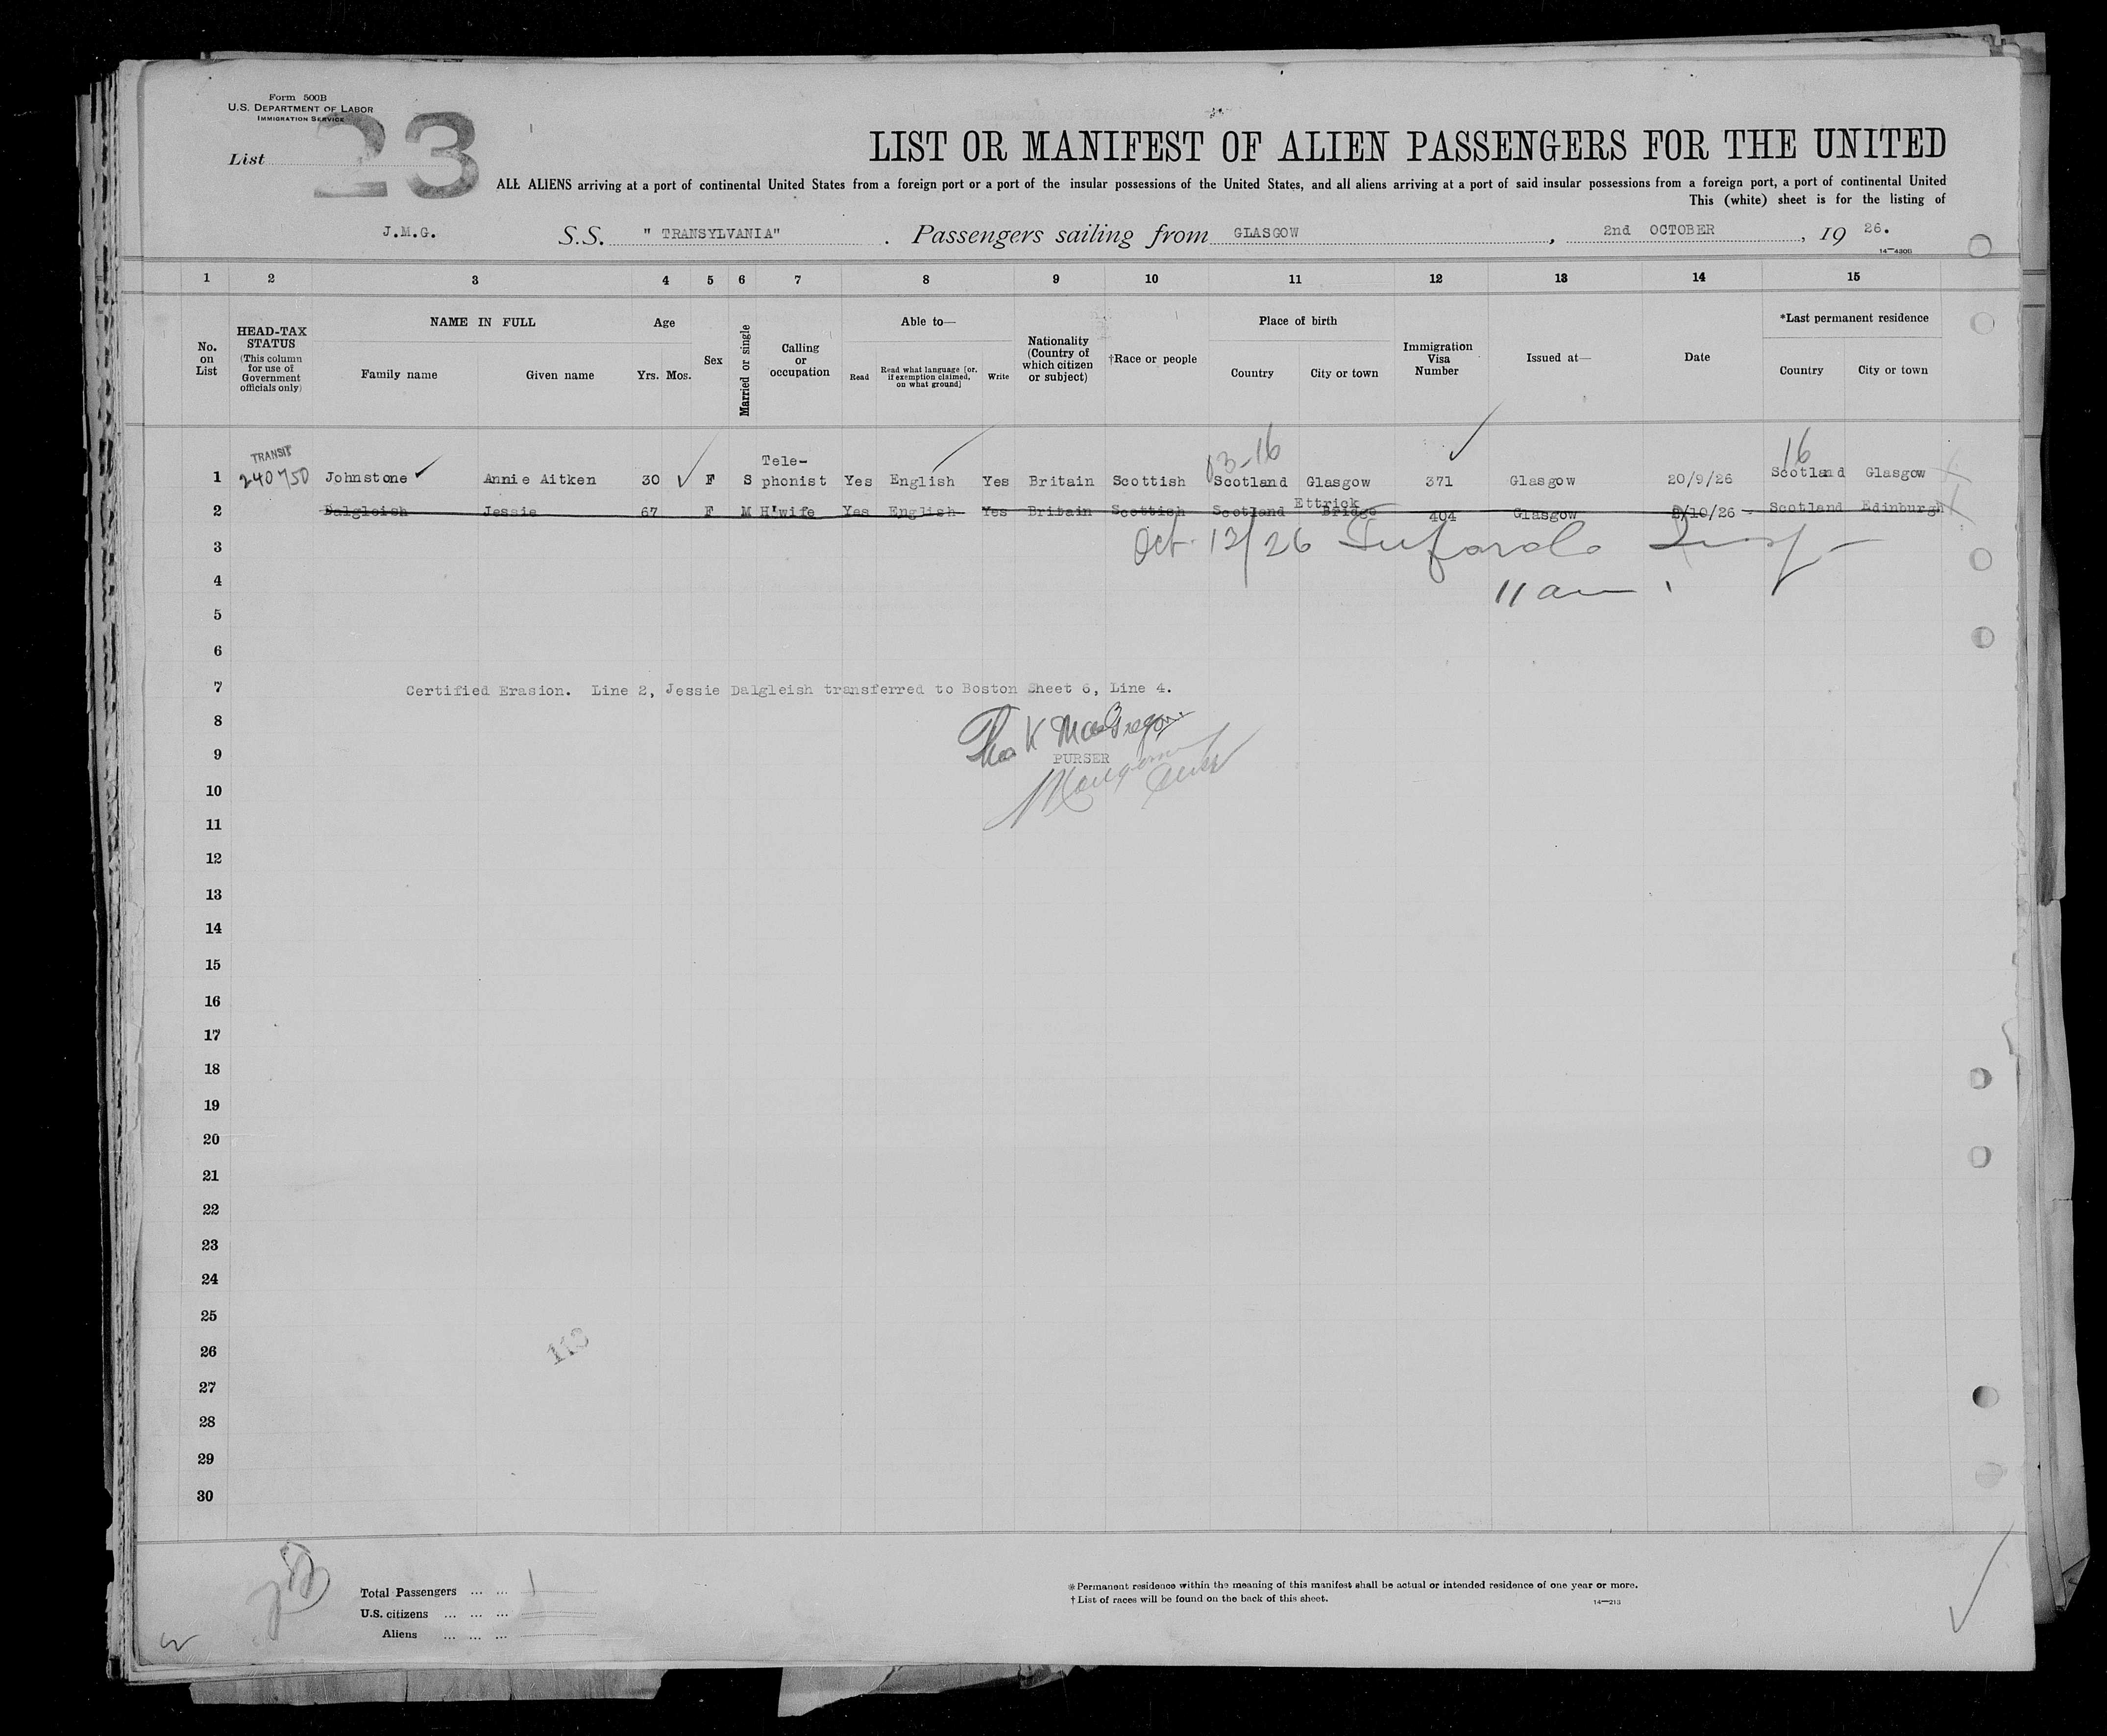 Form 500B
U.S. DEPARTMENT OF LABOR
IMMIGRATION SERVICE
List 23
LIST OR MANIFEST OF ALIEN PASSENGERS FOR THE UNITED
ALL ALIENS arriving at a port of continental United States from a foreign port or a port of the insular possessions of the United States, and all aliens arriving at a port of said insular possessions from a foreign port, a port of continental United
This (white) sheet is for the listing of
J.M.G. S.S. " TRANSYLVANIA" . Passengers sailing from GLASGOW, 2nd OCTOBER, 19 26.
14—430B
1 2 3 4 5 6 7 8 9 10 11 12 13 14 15
No. on List
HEAD-TAX STATUS (This column for use of Government officials only)
NAME IN FULL
Family name Given name
Age
Yrs. Mos.
Sex
Married or single
Calling or occupation
Able to—
Read
Read what language [or, if exemption claimed, on what ground]
Write
Nationality (Country of which citizen or subject)
†Race or people
Place of birth
Country City or town
Immigration Visa Number
Issued at—
Date
*Last permanent residence
Country City or town
TRANSIT
03-16 16
1 240750 Johnstone Annie Aitken 30 F S Tele-phonist Yes English Yes Britain Scottish Scotland Glasgow 371 Glasgow 20/9/26 Scotland Glasgow
2 Dalgleish Jessie 67 F M H'wife Yes English Yes Britain Scottish Scotland Ettrick Bridge 404 Glasgow 2/10/26 Scotland Edinburgh
3 Oct. 12/26 Insp
4 11 am
5
6
7 Certified Erasion. Line 2, Jessie Dalgleish transferred to Boston Sheet 6, Line 4.
8 Thos K MacGregor
9 PURSER
10
11
12
13
14
15
16
17
18
19
20
21
22
23
24
25
26 113
27
28
29
30
Total Passengers ... ... 1
U.S. citizens ... ... ...
Aliens ... ... ...
*Permanent residence within the meaning of this manifest shall be actual or intended residence of one year or more.
†List of races will be found on the back of this sheet.
14—213